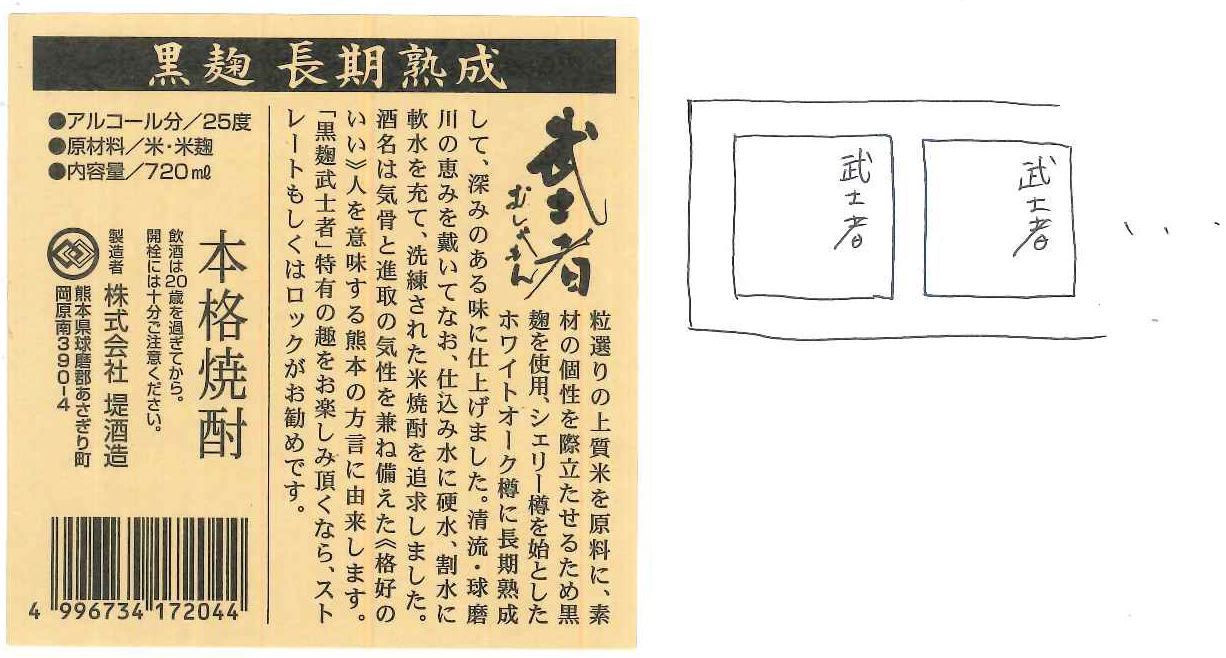 黒麹 長期熟成
武士者
むしゃもん
粒選りの上質米を原料に、素
材の個性を際立たせるため黒
麹を使用、シェリー樽を始とした
ホワイトオーク樽に長期熟成
して、深みのある味に仕上げました。清流・球磨
川の恵みを戴いてなお、仕込み水に硬水、割水に
軟水を充て、洗練された米焼酎を追求しました。
酒名は気骨と進取の気性を兼ね備えた《格好の
いい》人を意味する熊本の方言に由来します。
「黒麹武士者」特有の趣をお楽しみ頂くなら、スト
レートもしくはロックがお勧めです。
●アルコール分/25度
●原材料/米・米麹
●内容量/720㎖
本格焼酎
飲酒は20歳を過ぎてから。
開栓には十分ご注意ください。
製造者 株式会社 堤酒造
熊本県球磨郡あさぎり町
岡原南390-4
4 996734 172044
武士者
武士者